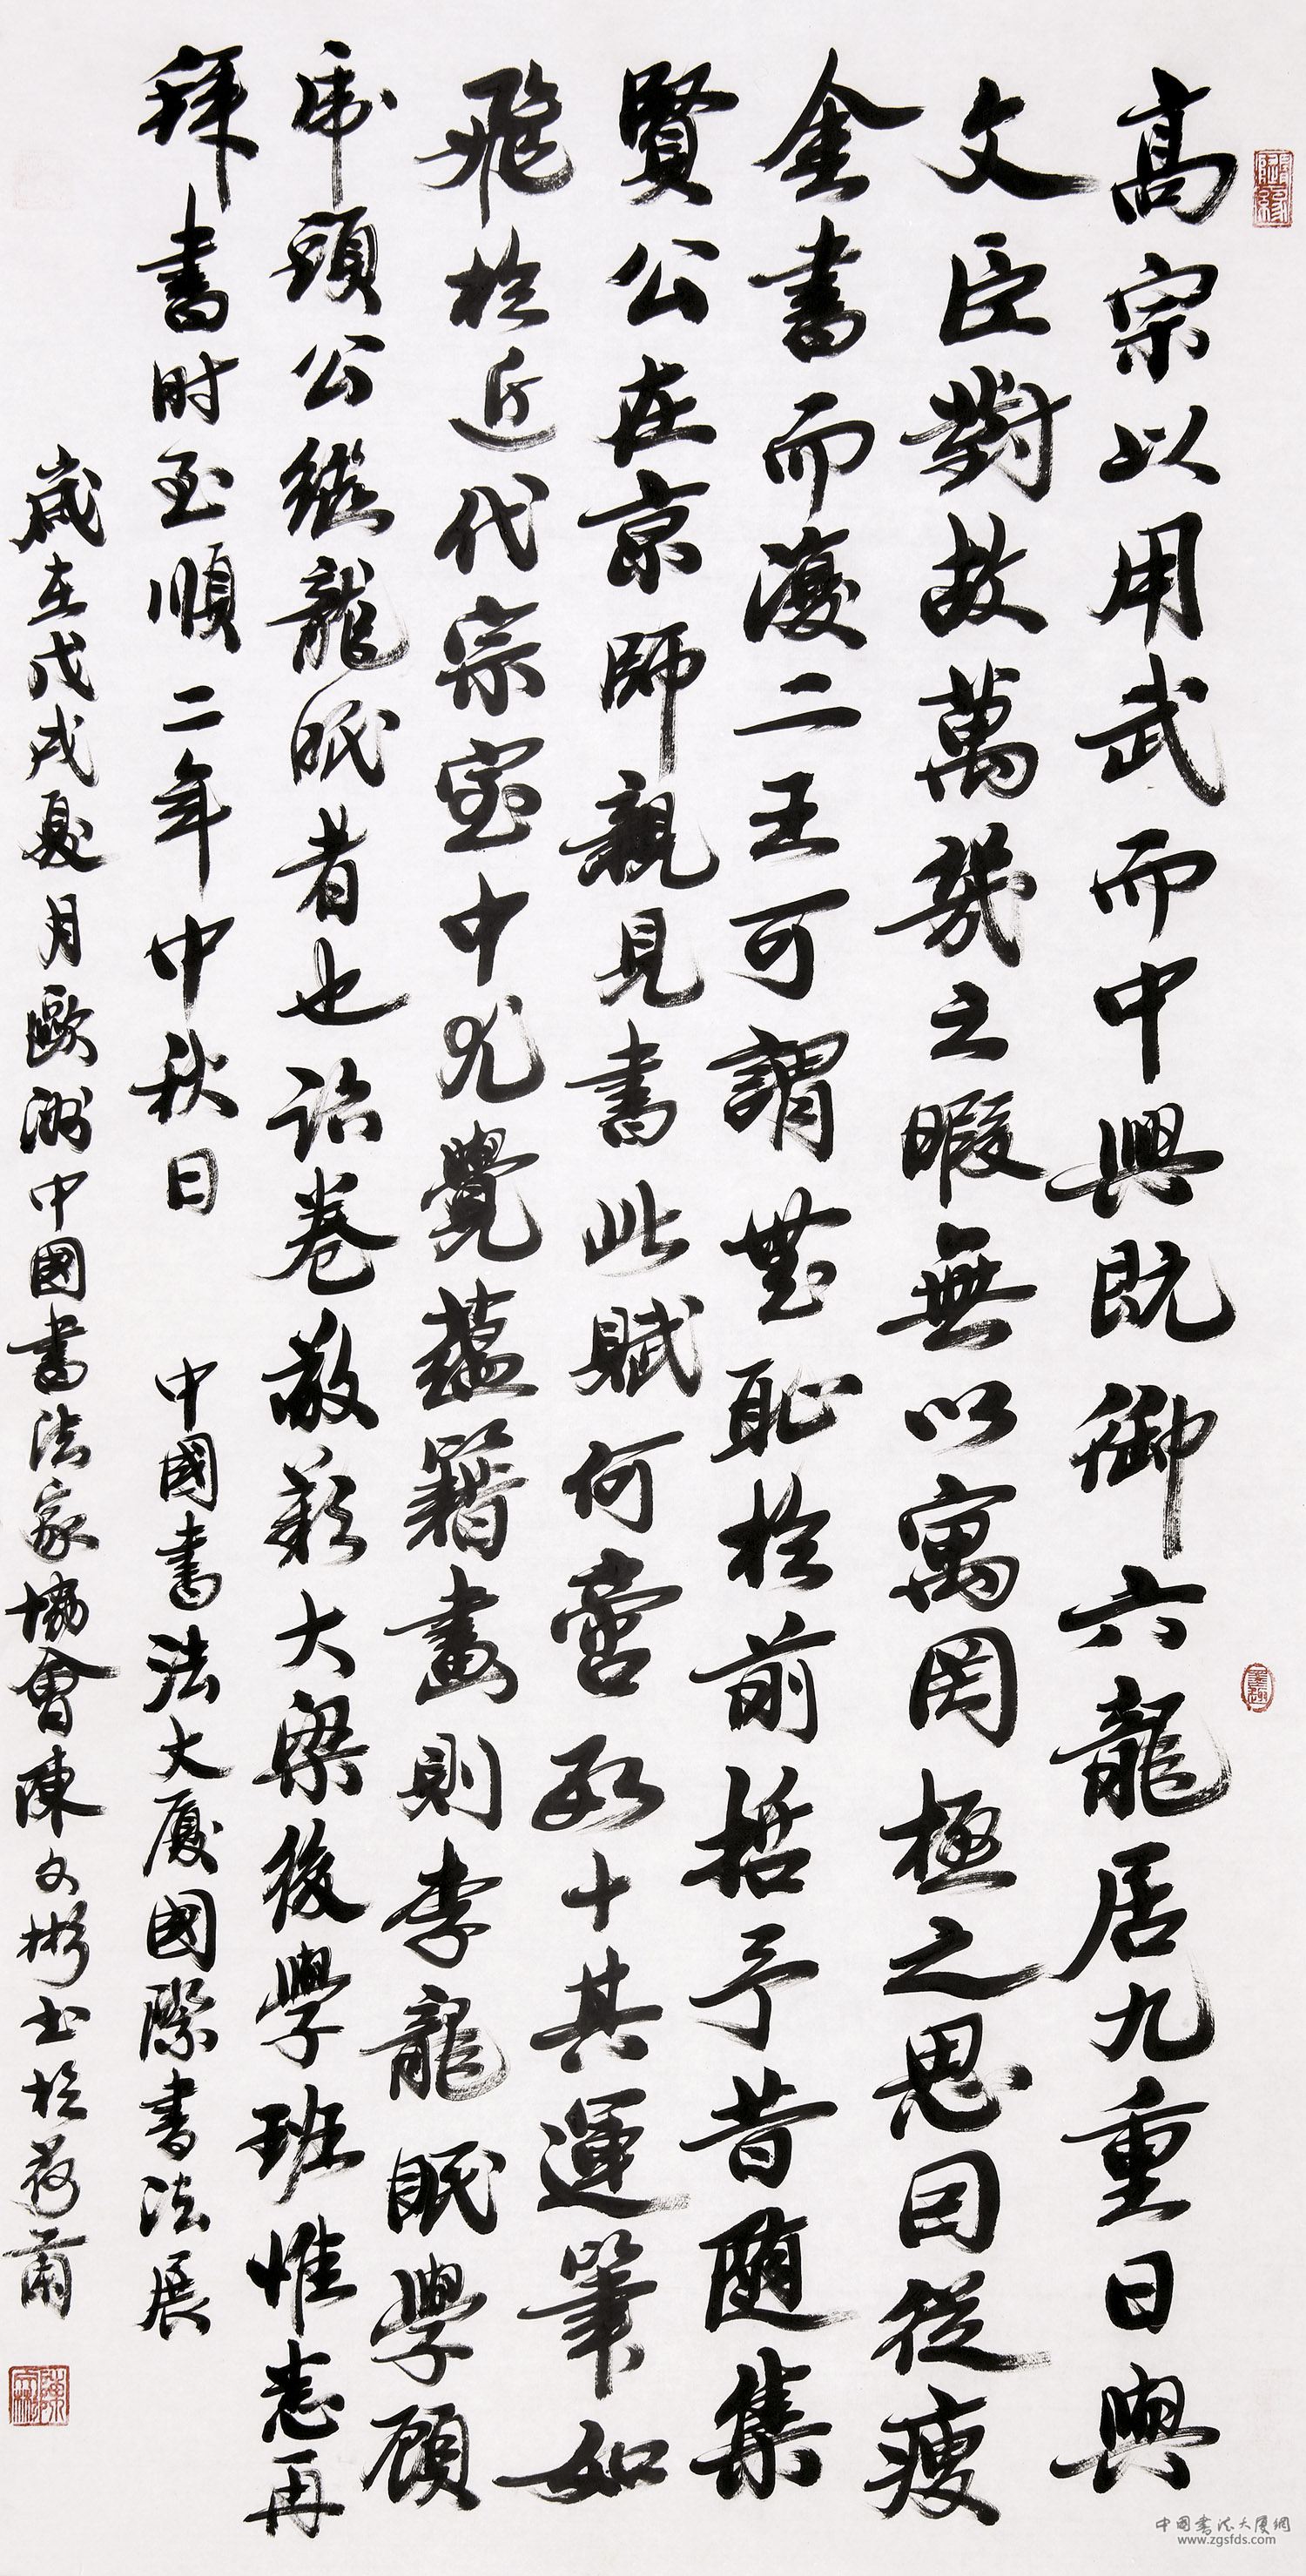 高宗以用武而中興既御六龍居九重日與
文臣對故萬幾之暇無以寓罔極之思因從瘦
金書而復二王可謂無恥於前哲予昔隨集
賢公在京師親見書此賦何啻數十其運筆如
飛於近代宗室中尤覺蘊籍畫則李龍眠學顧
虎頭公繼龍眠者也詒卷敬歎大梁後學班惟志再
拜書时至順二年中秋日 中國書法大厦國際書法展
歲在戊戌夏月歐洲中國書法家協會陳文彬书於荷蘭
中国书法大厦網
www.zgsfds.com